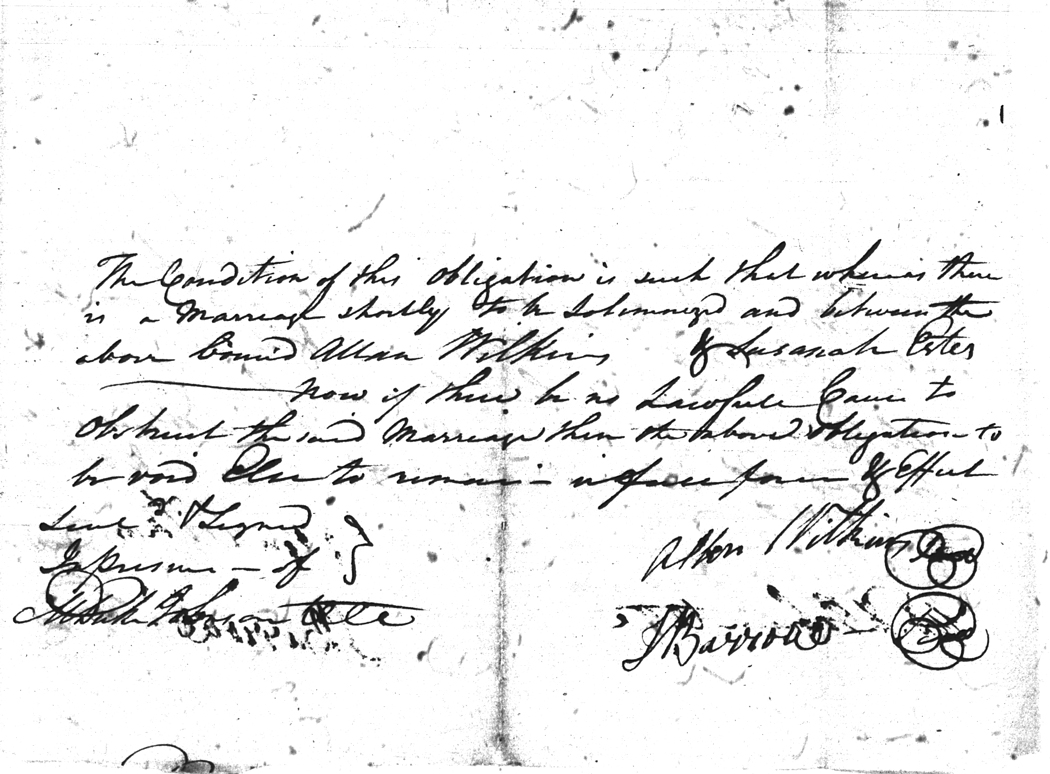 The Condition of this obligation is such that whereas there
is a Marriage shortly to be Solemnized and between the
above bound Allan Wilkins & Susanah Ester
Now if there be no Lawfull Cause to
Obstruct the said Marriage then the above obligation to
be void Else to remain in full force & Effect
Seal'd & Signed
In Presence of
Allen Wilkins Seal
J Barrow Seal